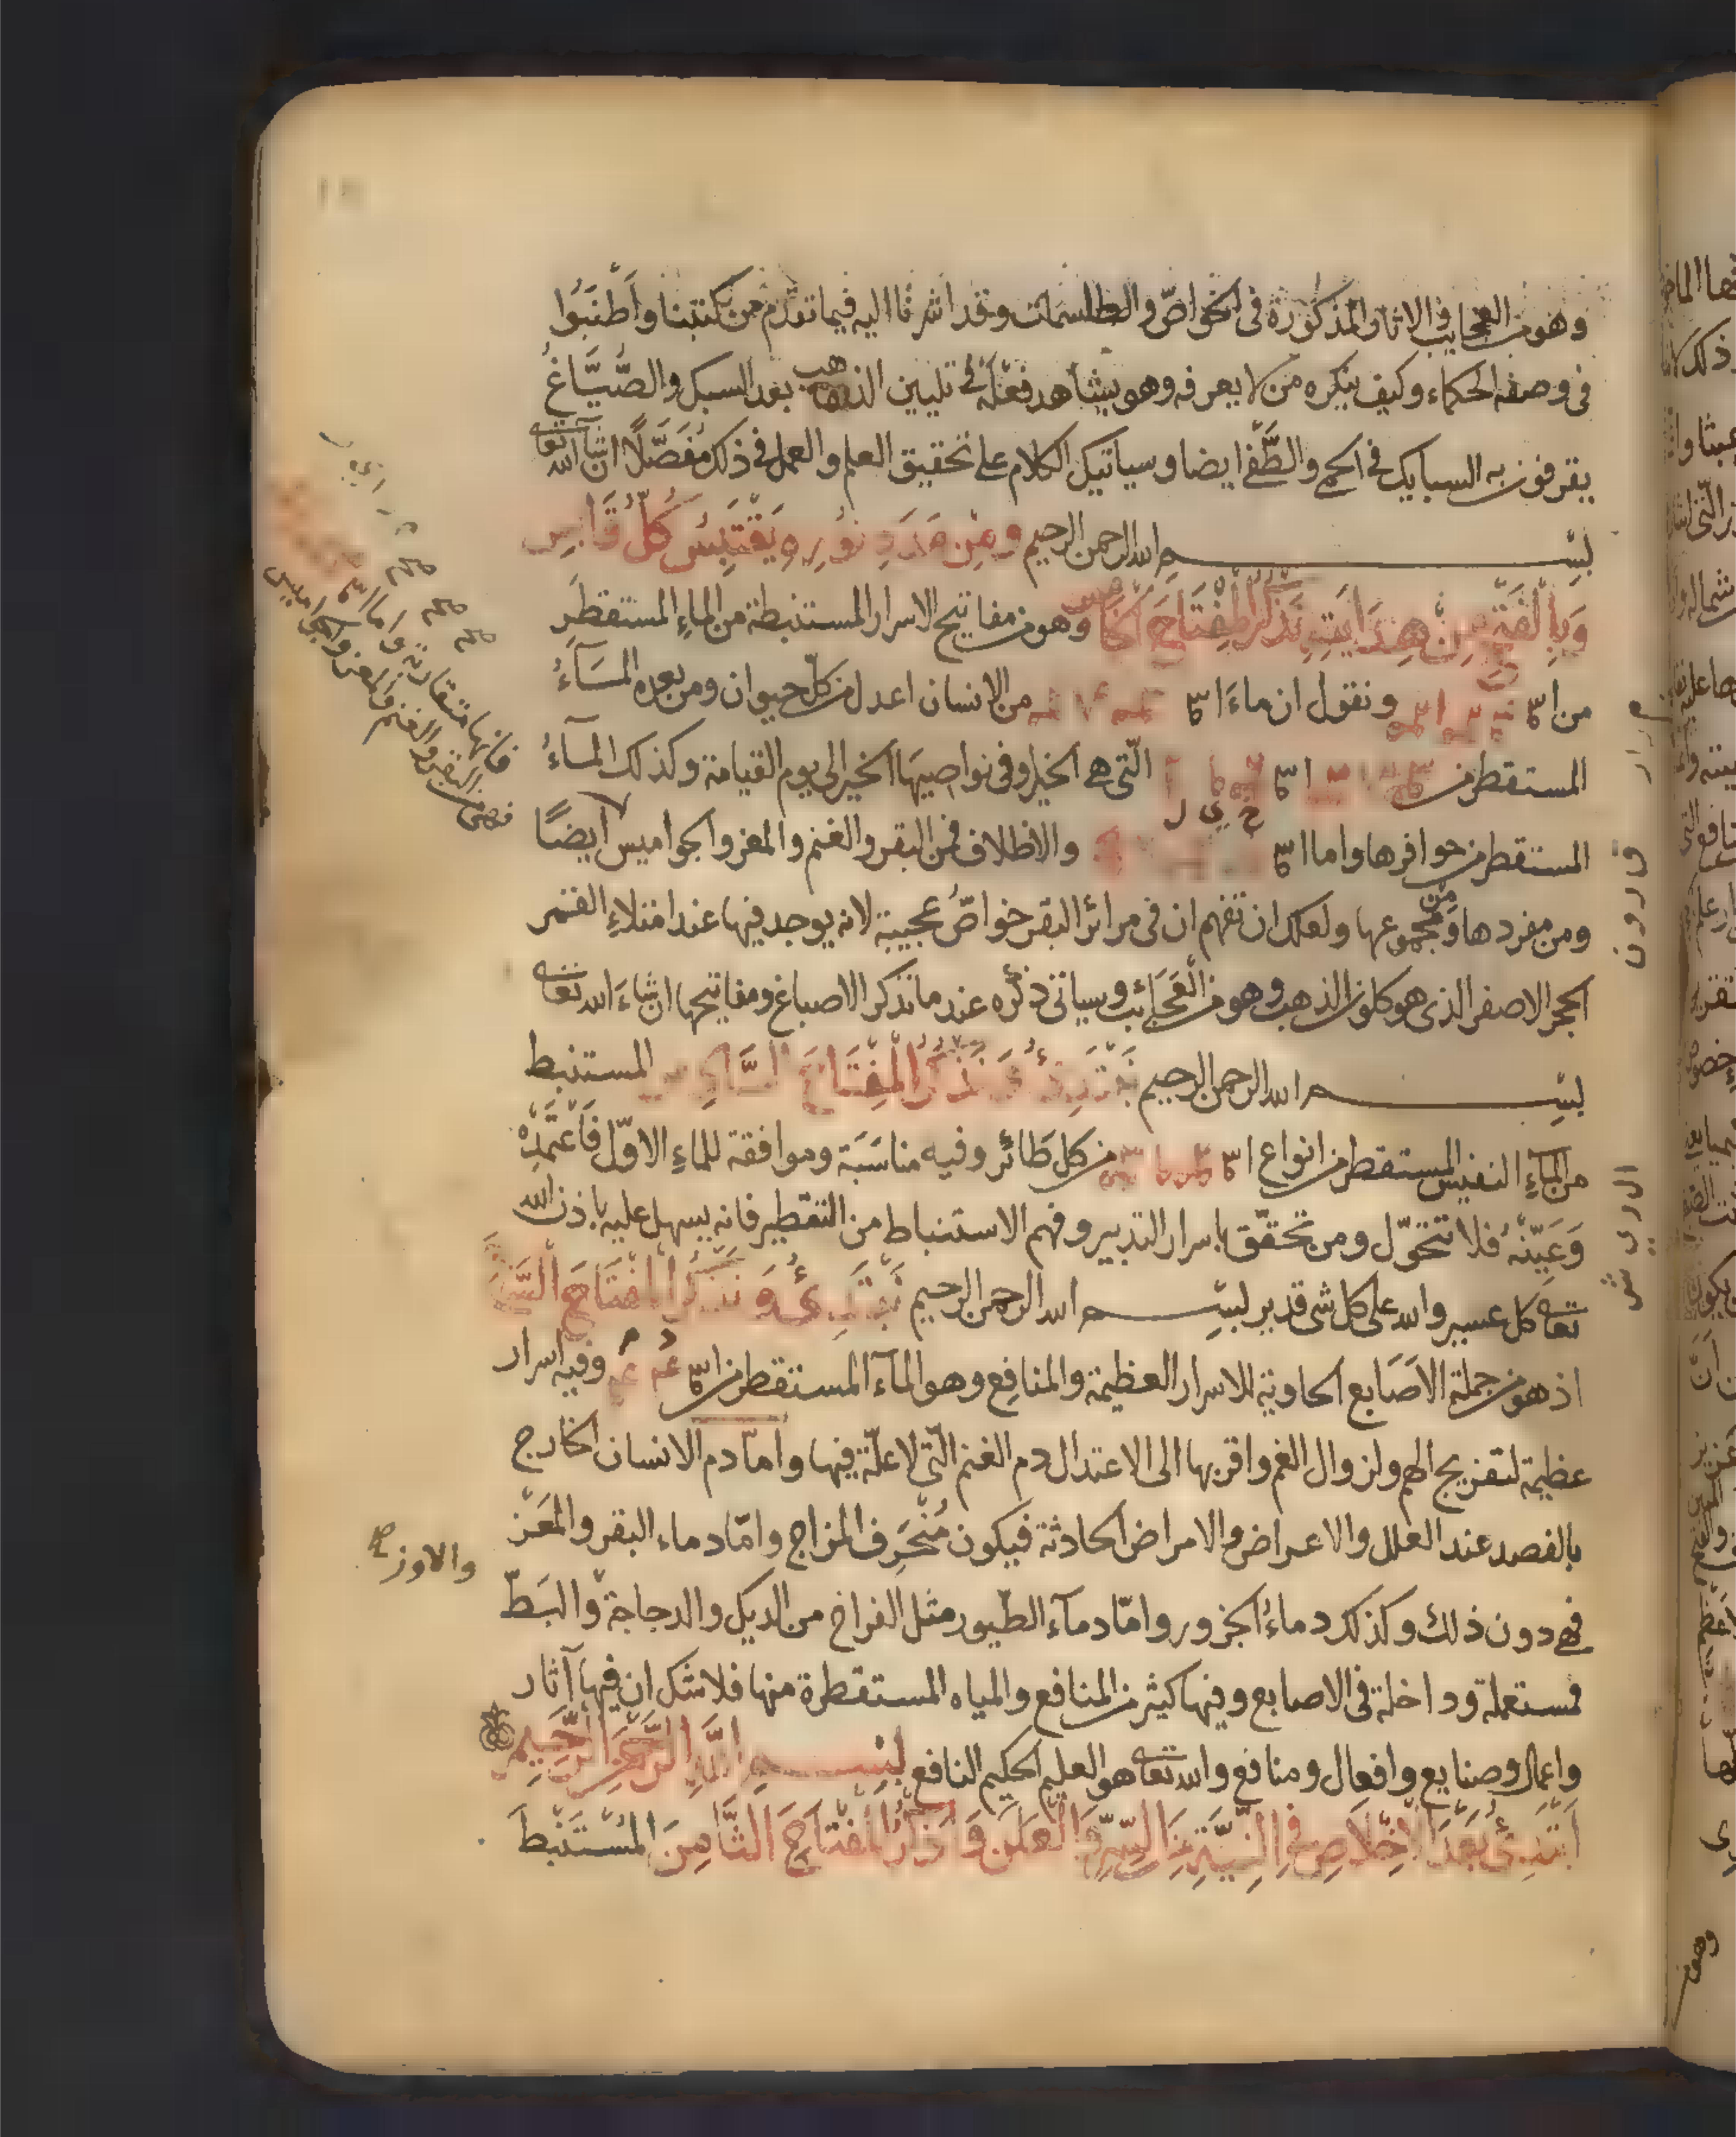 وهو من العجايب والاثار المذكورة فى الخواصّ والطلسمات وقد اشرنا اليه فيما تقدّم من كتبنا واَطْنَبُوا
فى وصفه الحكماء وكيف ينكره من لا يعرفه وهو يشاهد فعله فى تليين الذهب بعد السبك والصُّيَّاغُ
يقرفون به السبايك فى الحمى والطَّفْى ايضا وسياتيك الكلام على تحقيق العلم والعمل فى ذلك مُفَصَّلًا ان شآ الله تعالى
بِسْمِ الله الرحمن الرحيم ومِنْ مَدَدِ نُورِهِ يَقْتَبِسُ كُلُّ قَابِسٍ
نَذْكُرُ المِفْتَاحَ الخامس وهو من مفاتيح الاسرار المستنبطة من الماءِ المستقطَرِ
من ونقول ان ماءَ من الانسان اعدل من كلّ حيوان ومن بعده المَآءُ
المستقطر من الّتى هى الخيل وفى نواصيهَا الخير الى يوم القيامة وكذلك المآءُ
المستقطر من حوافرها واما والاظلاف من البقر والغنم والمعز والجواميس ايضًا
ومن مفردها ومن مجموعها ولعلك ان تفهم ان فى مرائر البقر خواصّ عجيبة لانه يوجد فيها عند امتلاءِ القمر
الحجر الاصفر الذى هو كلون الذهب وهو من العَجَائب وسياتى ذكره عند ما نذكر الاصباغ ومفاتيحها ان شاءَ الله تعالى
بِسْمِ الله الرحمن الرحيم نَبْتَدِئُ وَنَذْكُرُ المِفْتَاحَ السَّادِسَ المستنبط
من المآءِ النفيس المستقطر من انواع من كل طَائر وفيه مناسَبَة وموافقة للماءِ الاوّل فَاعْتَمِدْهُ
وَعَيِّنْهُ فلا تتحوّل ومن تحقّق باسرار التدبير وفهم الاستنباط من التقطير فانه يسهل عليه باذن الله
تعالى كل عسير والله على كل شى قدير بِسْمِ الله الرحمن الرحيم نَبْتَدِئُ وَنَذْكُرُ المِفْتَاحَ السَّابِعَ
اذ هو من جملة الاَصَابع الحاوية للاسرار العظيمة والمنافع وهو المآء المستقطر من وفيه اسرار
عظيمة لتفريج الهم ولزوال الغم واقربها الى الاعتدال دم الغنم الّتى لا علّة فيها وامّا دم الانسان الخارج
بالفصد عند العلل والاعراض والامراض الحادثة فيكون مُنْحَرِف المزاج وامّا دماء البقر والمَعَز
فهى دون ذلك وكذلك دماءُ الجزور وامّا دمآء الطّيور مثل الفراخ من الديك والدجاجة والبَطّ
والاوز صح
فمستعملة وداخلة فى الاصابع وفيها كثير من المنافع والمياه المستقطرة منها فلا شك ان فيها آثار
واعمال وصنايع وافعال ومنافع والله تعالى هو العليم الحكيم النافع بِسْمِ اللهِ الرَّحْمَنِ الرَّحِيمِ
اَبْتَدِئُ بَعْدَ الاِخْلَاصِ فى النِّيَّةِ فى السِّرِّ وَالعَلَنِ وَاَذْكُرُ المِفْتَاحَ الثَّامِنَ المُسْتَنْبَطَ